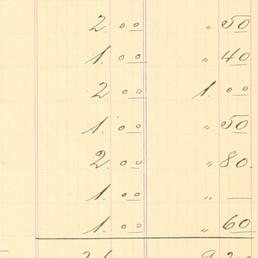 2. 00 " 50
1. 00 " 40
2. 00 1. 00
1. 00 " 50
2. 00 " 80.
1. 00 " —
1. 00 " 60